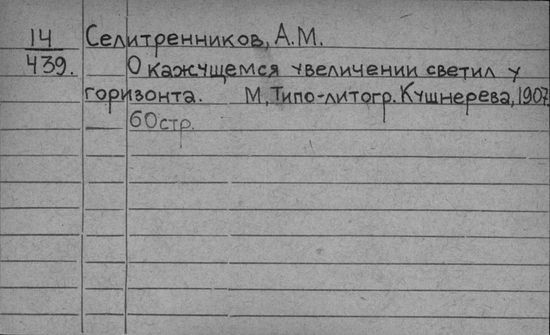 14 Селитренников, А.М.
439. О кажущемся увеличении светил у
горизонта. М, Типо-литогр. Кушнерева, 1907
60стр.